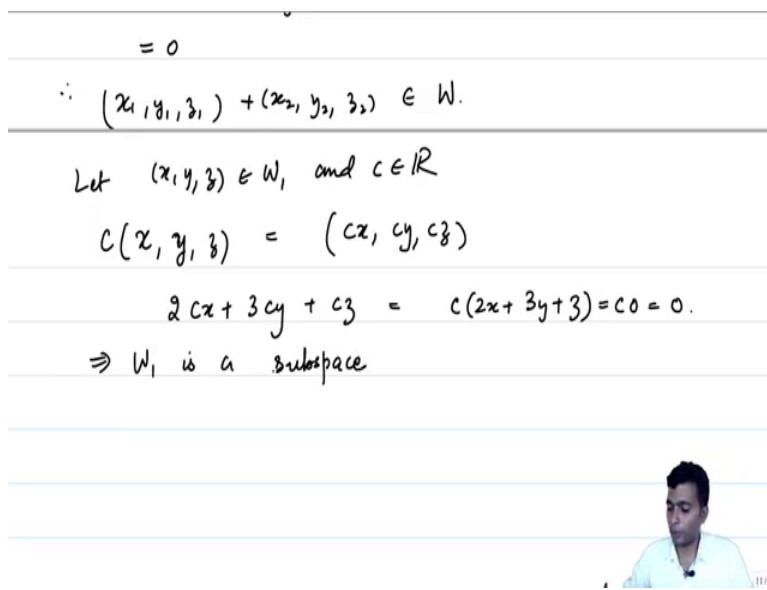 = 0
∴ (x₁, y₁, z₁) + (x₂, y₂, z₂) ∈ W.
Let (x, y, z) ∈ W₁ and c ∈ ℝ
c(x, y, z) = (cx, cy, cz)
2cx + 3cy + cz = c(2x + 3y + z) = c0 = 0.
⇒ W₁ is a subspace